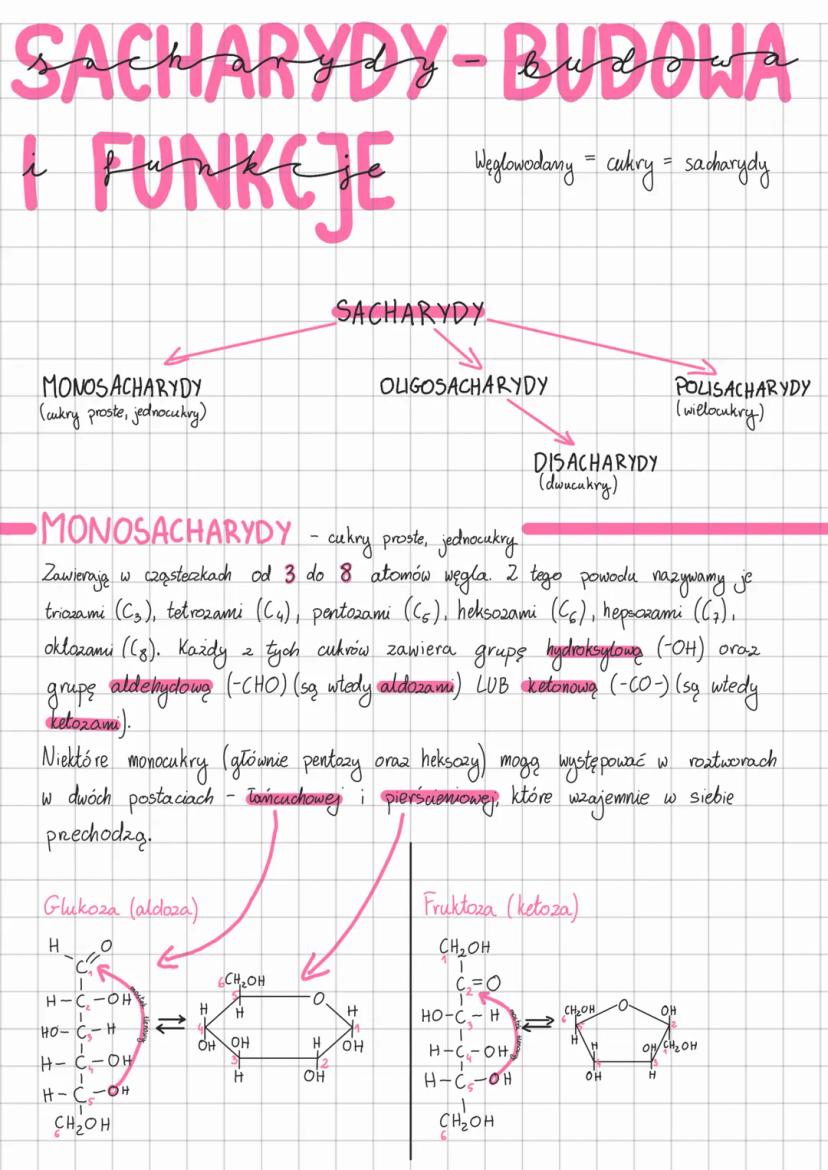 SACHARYDY - BUDOWA
sacharydy - budowa
I FUNKCJE
i funkcje
Węglowodany = cukry = sacharydy
SACHARYDY
MONOSACHARYDY
(cukry proste, jednocukry)
OLIGOSACHARYDY
POLISACHARYDY
(wielocukry)
DISACHARYDY
(dwucukry)
MONOSACHARYDY - cukry proste, jednocukry
Zawierają w cząsteczkach od 3 do 8 atomów węgla. Z tego powodu nazywamy je
triozami (C3), tetrozami (C4), pentozami (C5), heksozami (C6), hepsozami (C7),
oktozami (C8). Każdy z tych cukrów zawiera grupę hydroksylową (-OH) oraz
grupę aldehydową (-CHO) (są wtedy aldozami) LUB ketonową (-CO-) (są wtedy
ketozami).
Niektóre monocukry (głównie pentozy oraz heksozy) mogą występować w roztworach
w dwóch postaciach - łańcuchowej i pierścieniowej, które wzajemnie w siebie
przechodzą.
Glukoza (aldoza)
H O
C 1
H - C - OH 2
HO - C - H 3
H - C - OH 4
H - C - OH 5
CH2OH
6
mostek tlenowy
6 CH2OH
5 O
H H H
4 1
OH OH H OH
3 2
H OH
Fruktoza (ketoza)
CH2OH
1
C = O
2
HO - C - H
3
H - C - OH
4
H - C - OH
5
CH2OH
6
mostek tlenowy
CH2OH O OH
6 5 2
H OH CH2OH
1
4 3
OH H